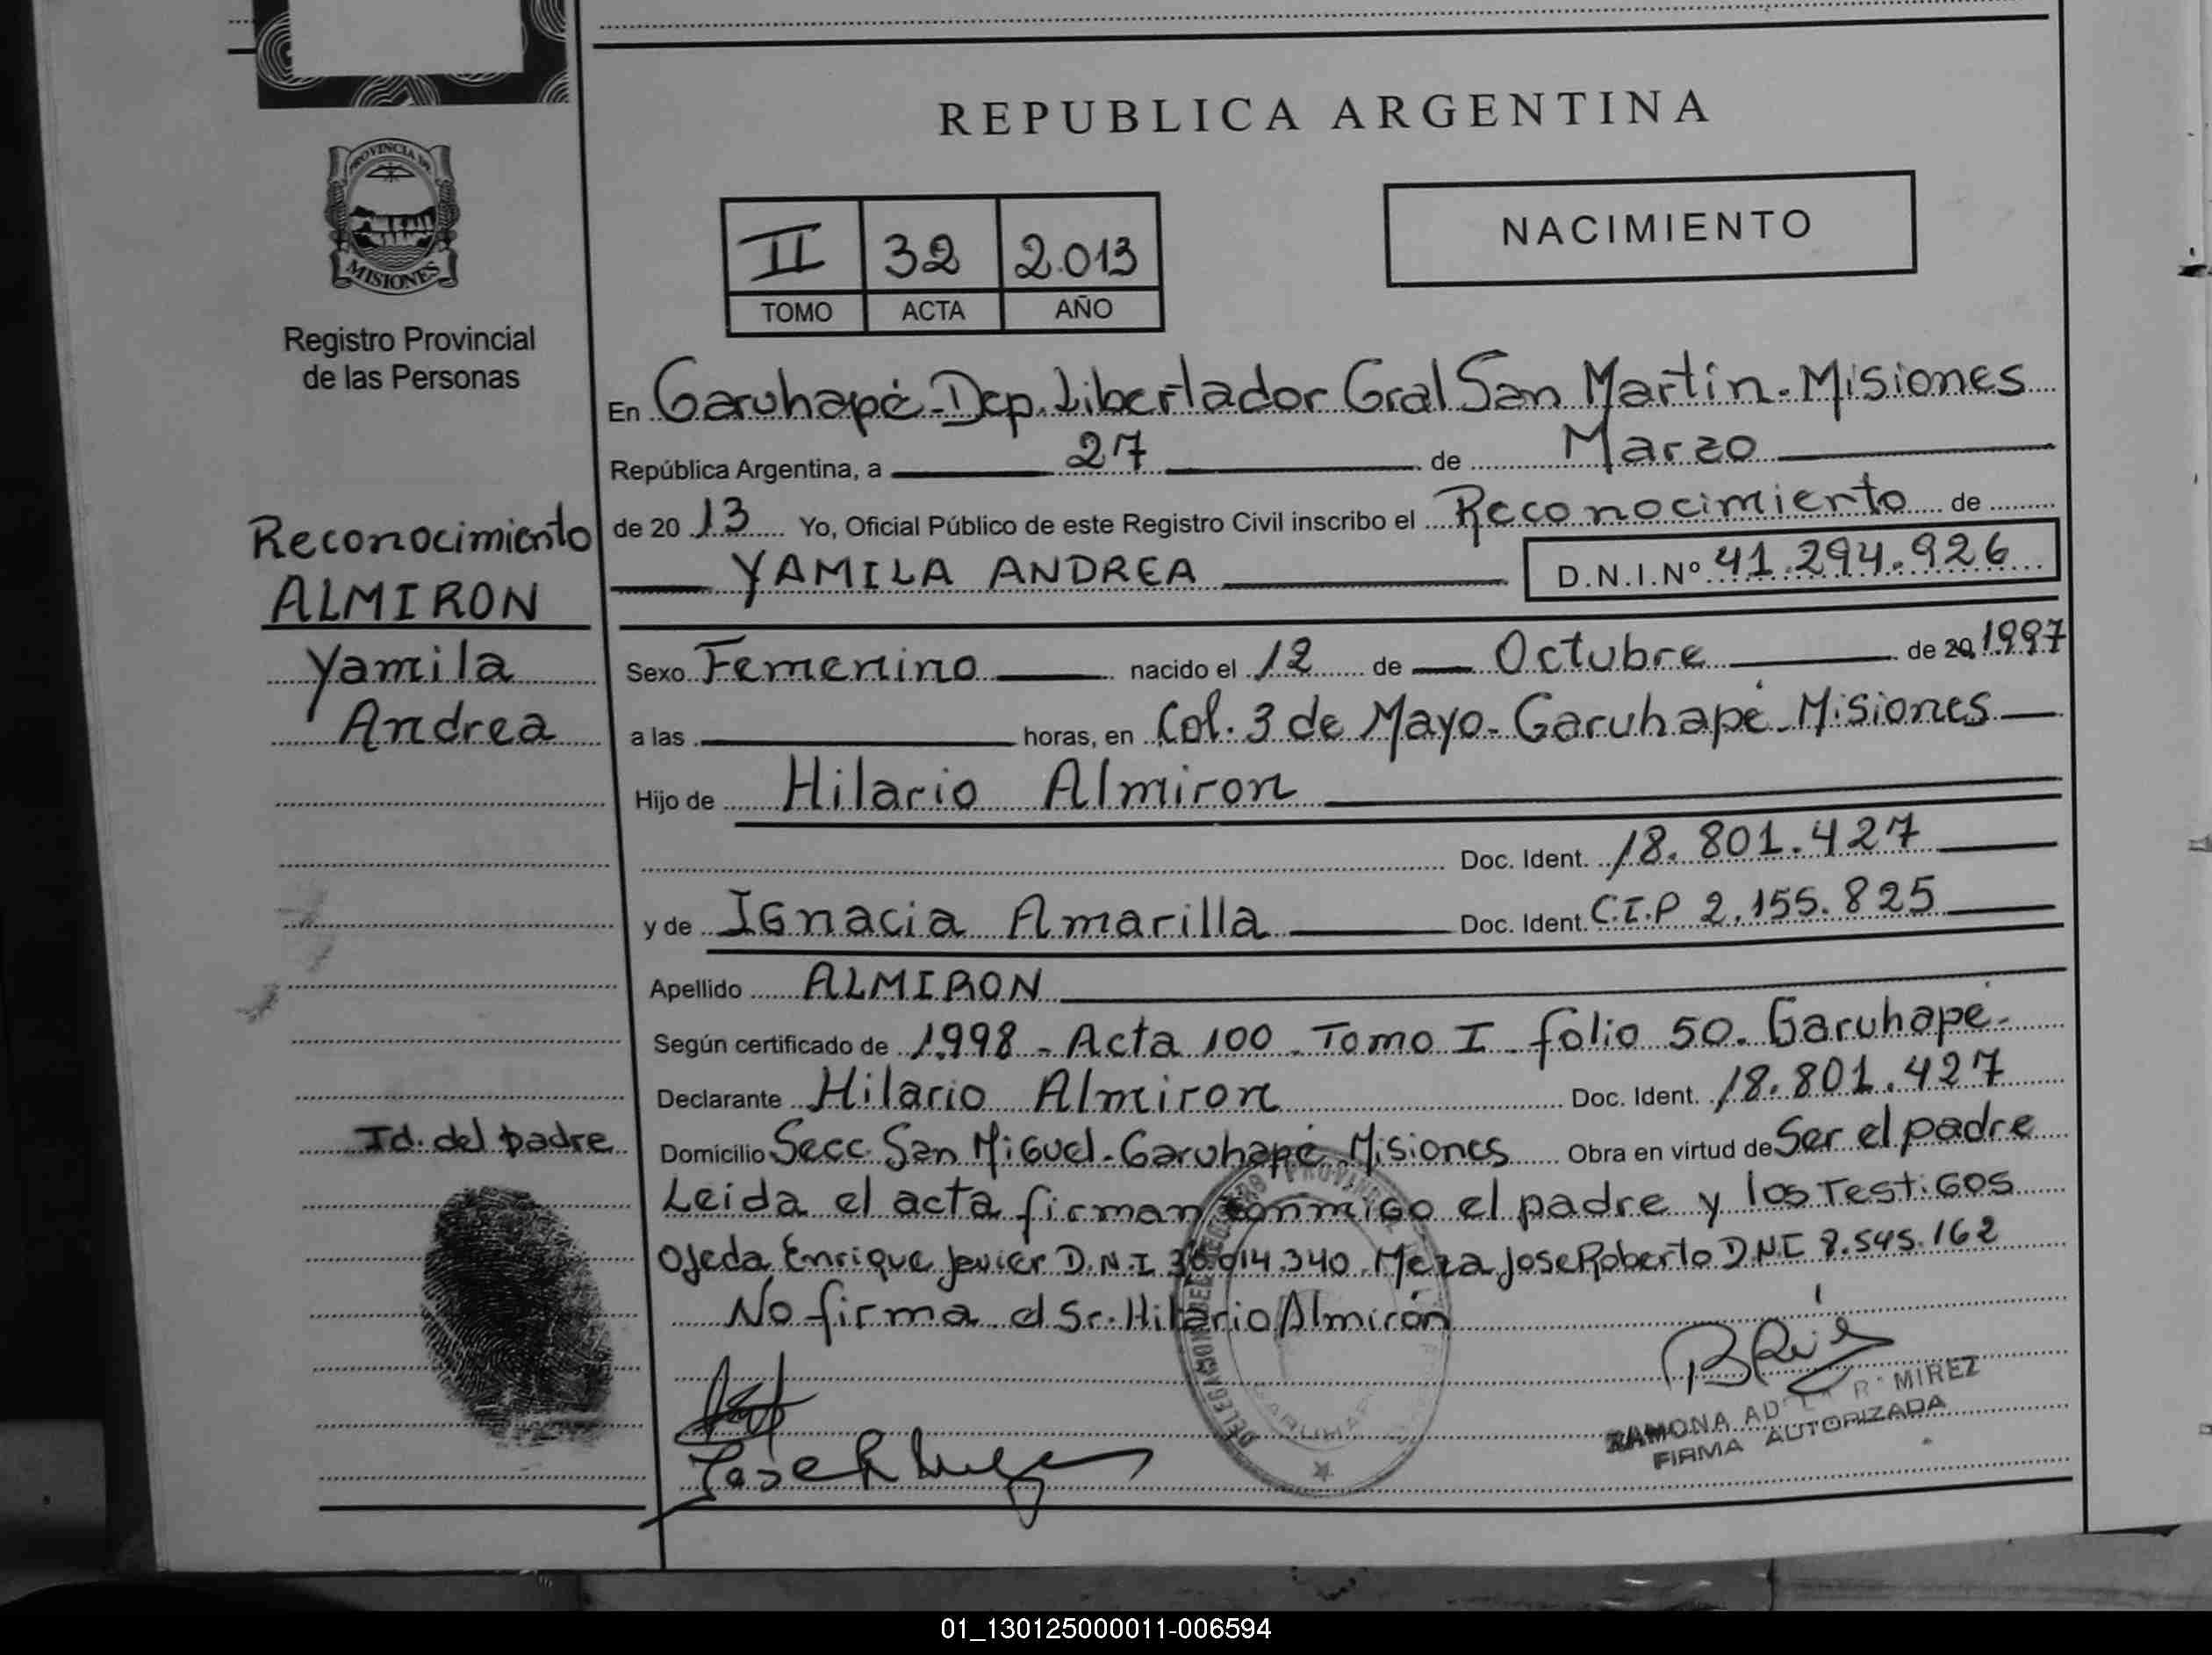 REPUBLICA ARGENTINA
PROVINCIA DE
MISIONES
Registro Provincial
de las Personas
NACIMIENTO
II 32 2.013
TOMO ACTA AÑO
En Garuhapé-Dep. Libertador Gral San Martín-Misiones
República Argentina, a 27 de Marzo
de 20 13 Yo, Oficial Público de este Registro Civil inscribo el Reconocimiento de
YAMILA ANDREA D.N.I.Nº 41.294.926
Reconocimiento
ALMIRON
Yamila
Andrea
Sexo Femenino nacido el 12 de Octubre de 20 1997
a las horas, en Col. 3 de Mayo-Garuhapé-Misiones
Hijo de Hilario Almiron
Doc. Ident. 18.801.427
y de Ignacia Amarilla Doc. Ident. C.I.P 2.155.825
Apellido ALMIRON
Según certificado de 1.998 - Acta 100 - Tomo I - folio 50. Garuhapé-
Declarante Hilario Almiron Doc. Ident. 18.801.427
Id. del padre
Domicilio Secc San Miguel-Garuhapé Misiones Obra en virtud de Ser el padre
Leida el acta firman conmigo el padre y los Testigos
Ojeda, Enrique Javier D.N.I 36.014.340. Meza Jose Roberto D.N.I 8.545.162
No firma el Sr. Hilario Almirón
RAMONA RAMIREZ
FIRMA AUTORIZADA
01_130125000011-006594